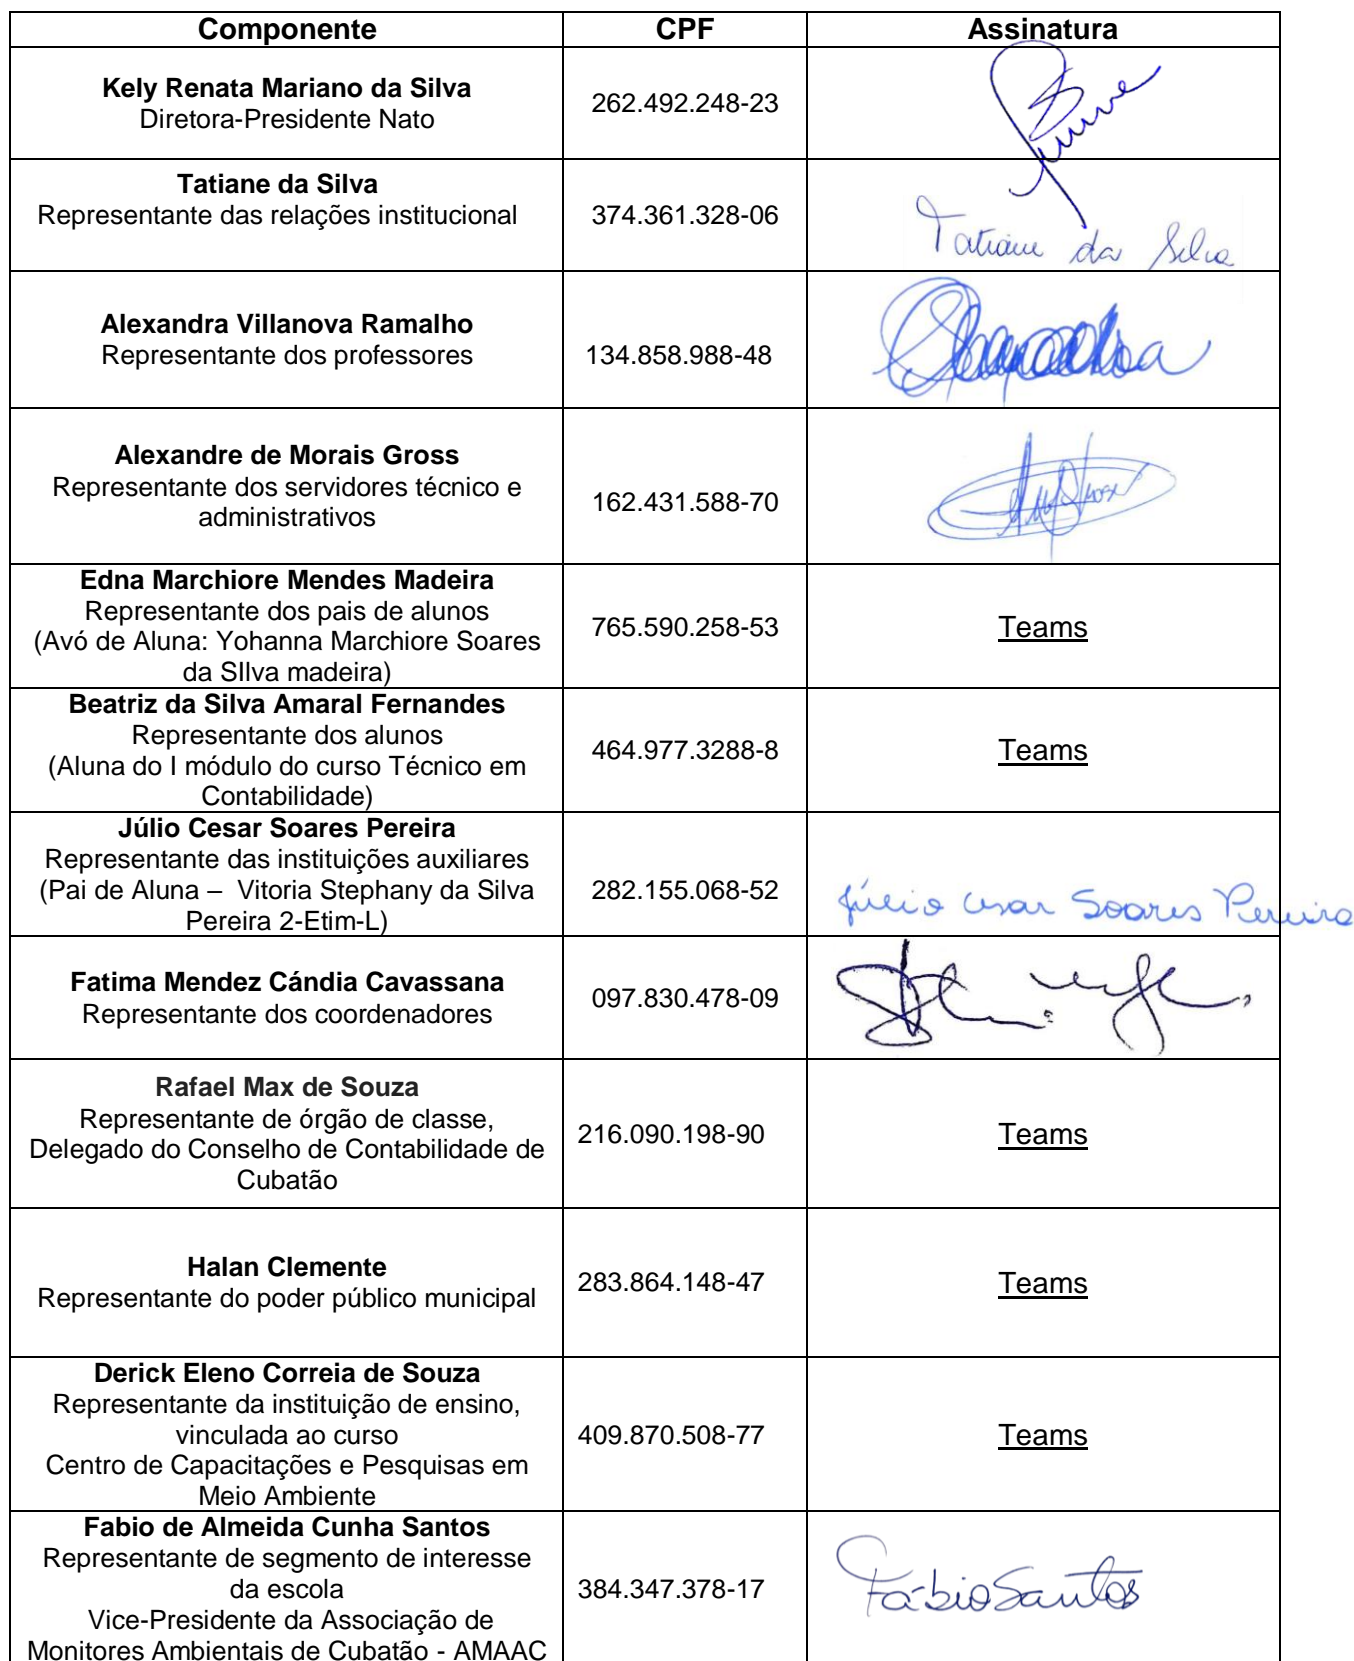 Componente CPF Assinatura
Kely Renata Mariano da Silva
Diretora-Presidente Nato
262.492.248-23
Tatiane da Silva
Representante das relações institucional
374.361.328-06
Tatiane da Silva
Alexandra Villanova Ramalho
Representante dos professores
134.858.988-48
Alexandre de Morais Gross
Representante dos servidores técnico e
administrativos
162.431.588-70
Edna Marchiore Mendes Madeira
Representante dos pais de alunos
(Avó de Aluna: Yohanna Marchiore Soares
da SIlva madeira)
765.590.258-53
Teams
Beatriz da Silva Amaral Fernandes
Representante dos alunos
(Aluna do I módulo do curso Técnico em
Contabilidade)
464.977.3288-8
Teams
Júlio Cesar Soares Pereira
Representante das instituições auxiliares
(Pai de Aluna – Vitoria Stephany da Silva
Pereira 2-Etim-L)
282.155.068-52
Júlio Cesar Soares Pereira
Fatima Mendez Cándia Cavassana
Representante dos coordenadores
097.830.478-09
Rafael Max de Souza
Representante de órgão de classe,
Delegado do Conselho de Contabilidade de
Cubatão
216.090.198-90
Teams
Halan Clemente
Representante do poder público municipal
283.864.148-47
Teams
Derick Eleno Correia de Souza
Representante da instituição de ensino,
vinculada ao curso
Centro de Capacitações e Pesquisas em
Meio Ambiente
409.870.508-77
Teams
Fabio de Almeida Cunha Santos
Representante de segmento de interesse
da escola
Vice-Presidente da Associação de
Monitores Ambientais de Cubatão - AMAAC
384.347.378-17
Fábio Santos